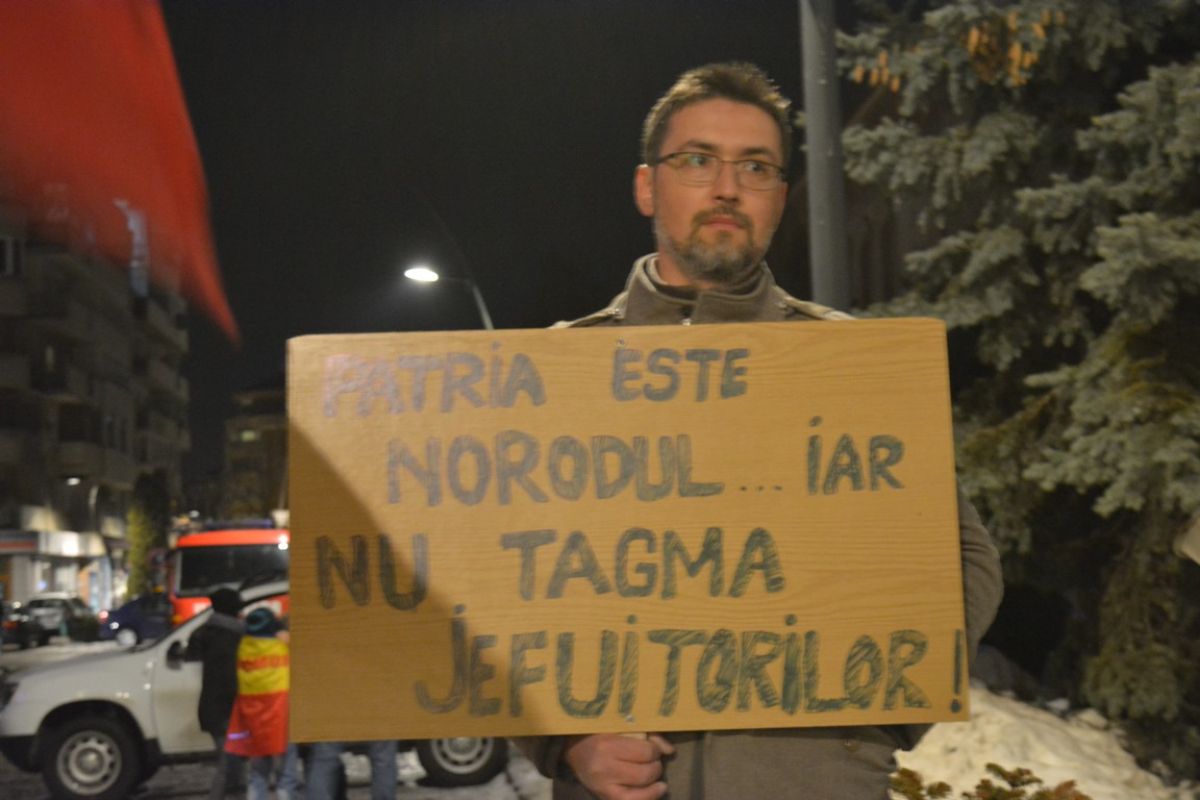 PATRiA ESTE
NORODUL... iAR
NU TAGMA
JEFUiTORiLOR!